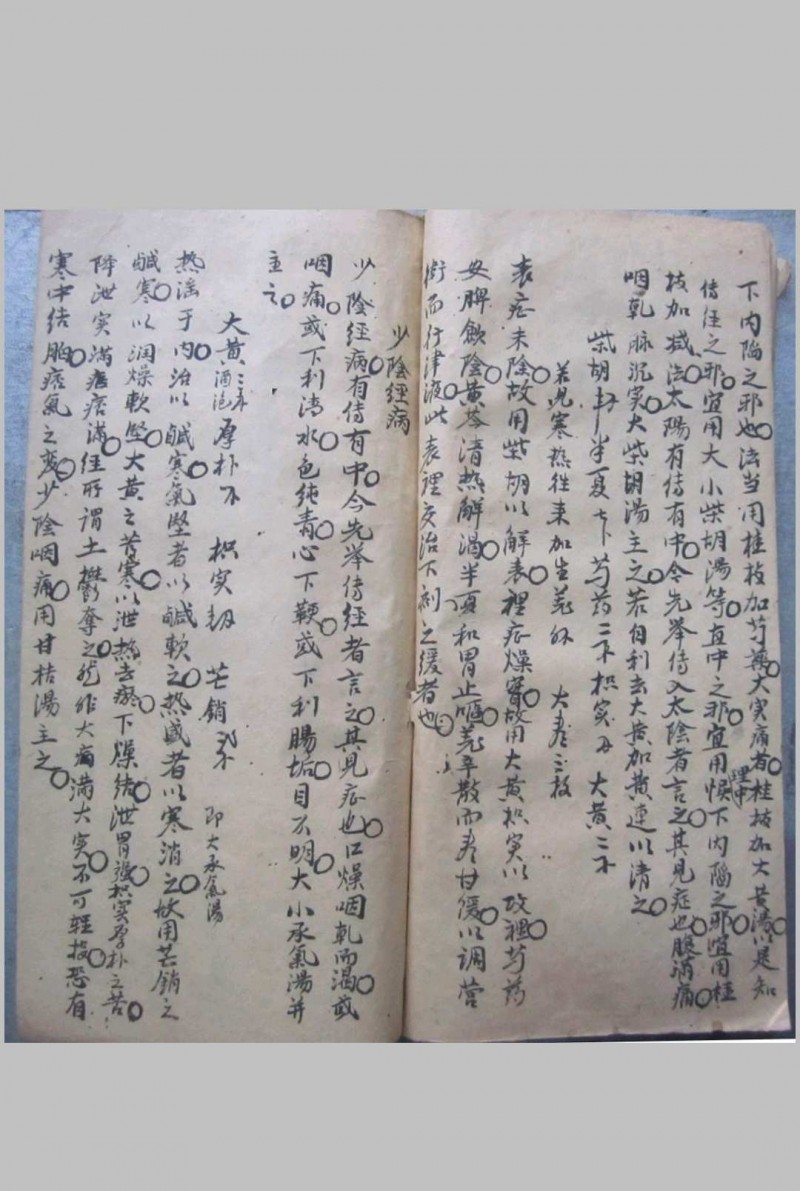 下内陷之邪也○法当用桂枝加芍藥○大实痛者○桂枝加大黄湯○以是知
傳经之邪○宜用大小柴胡湯等○直中之邪○宜用理中 下内陷之邪○宜用桂
枝加减法○太陽有傳有中○今先举傳入太陰者言之○其見症也○腹满痛○
咽乾脉沉实○大柴胡湯主之○若自利去大黄加黄連以清之○
柴胡 半夏 芍药二 枳实 大黄二
若見寒热往来加生姜 大枣三枚
表症未除○故用柴胡以解表○裡症燥实○故用大黄枳实以攻裡○芍药
安脾歛陰○黄芩清热解渴○半夏和胃止嘔○姜辛散而枣甘缓○以调营
衛而行津液○此表裡交治下剂之缓者也○
少陰經病
少陰經病○有傳有中○今先举傳经者言之○其見症也○口燥咽乾而渴○或
咽痛○或下利清水○色纯青○心下鞕○或下利腸垢○目不明○大小承氣湯并
主之○
大黄酒洗 厚朴 枳实 芒硝 即大承氣湯
热滛于内○治以鹹寒○氣堅者以鹹軟之○热盛者以寒消之○故用芒硝之
鹹寒○以润燥軟堅○大黄之苦寒○以泄热去瘀○下燥结○泄胃强○枳实厚朴之苦○
降泄实满痞○经所谓土鬱奪之○然非大痛满大实○不可轻投○恐有
寒中结胸痞氣之变○少陰咽痛○用甘桔湯主之○